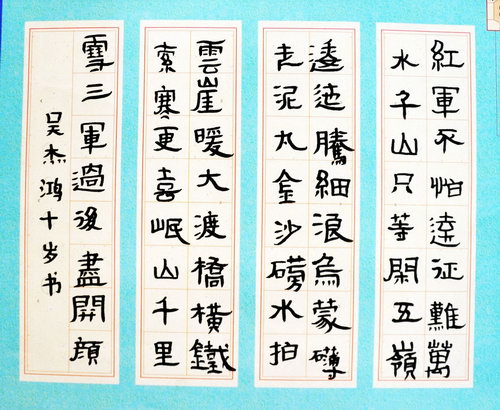 紅軍不怕遠征難萬
水千山只等閑五嶺
逶迤騰細浪烏蒙礴
走泥丸金沙磅水拍
雲崖暖大渡橋橫鐵
索寒更喜岷山千里
雪三軍過後盡開顏
吴杰鸿十岁书